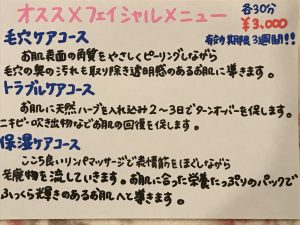 オススメフェイシャルメニュー
各30分
¥3,000
有効期限3週間!!
毛穴ケアコース
お肌表面の角質をやさしくピーリングしながら
毛穴の奥の汚れを取り除き透明感のあるお肌に導きます。
トラブルケアコース
お肌に天然ハーブを入れ込み2〜3日でターンオーバーを促します。
ニキビ・吹き出物などお肌の回復を促します。
保湿ケアコース
ここち良いリンパマッサージで表情筋をほぐしながら
老廃物を流していきます。お肌に合った栄養たっぷりのパックで
ふっくら輝きのあるお肌へと導きます。